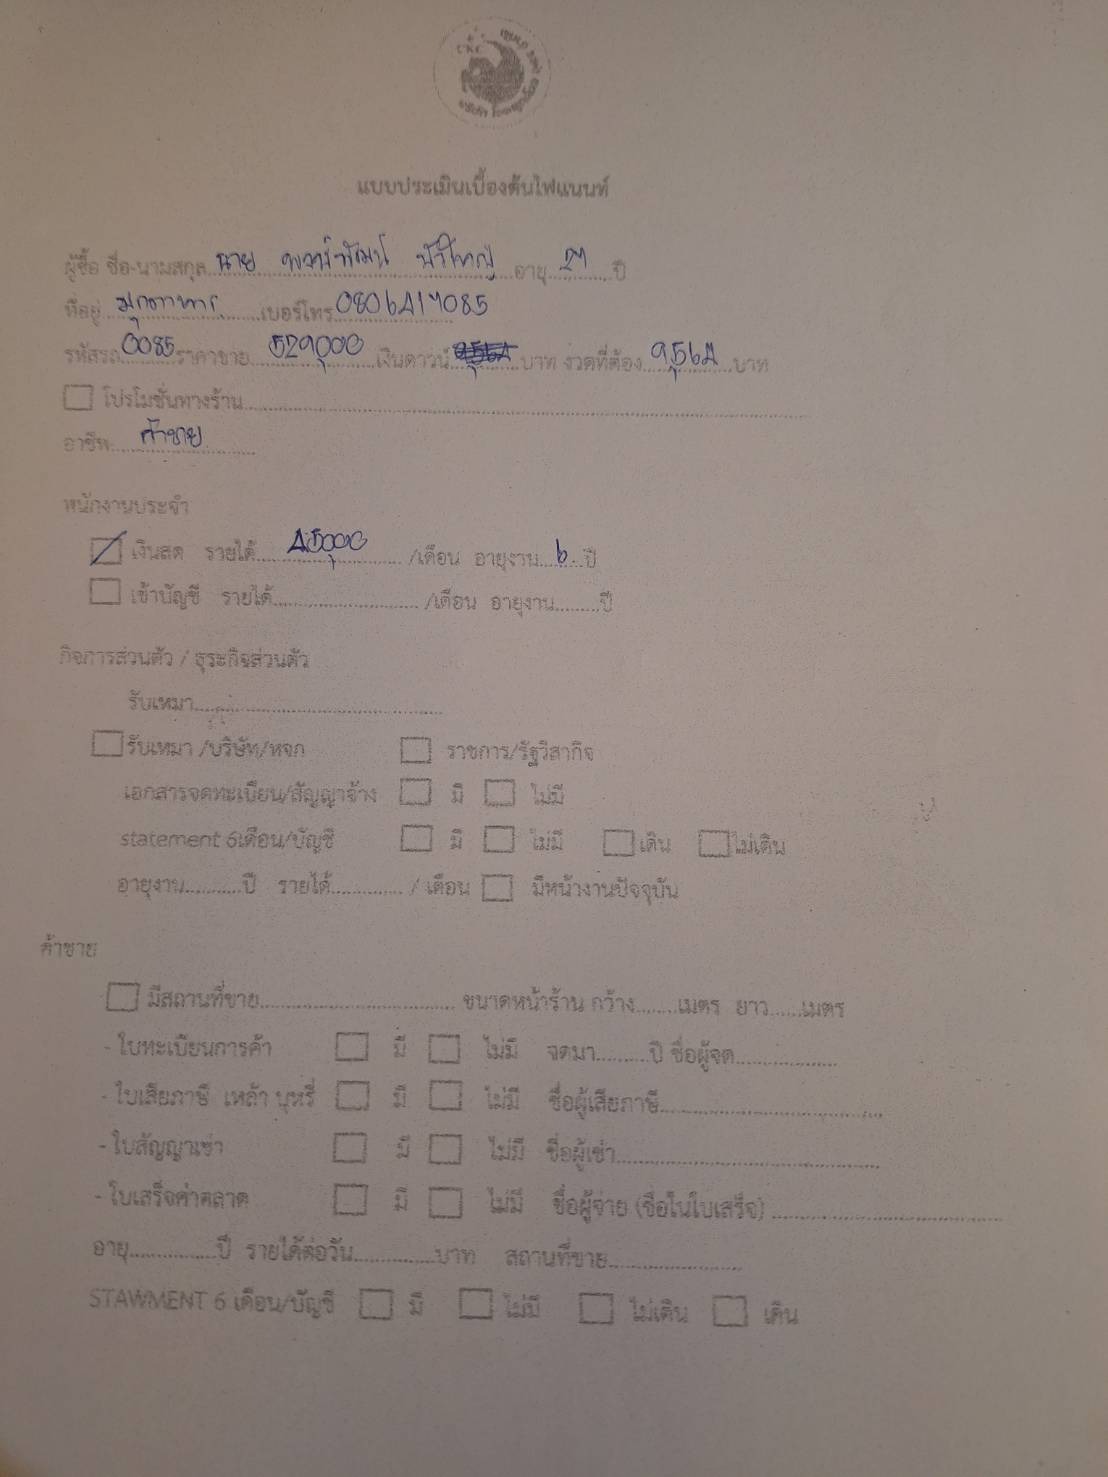 CKC
แบบประเมินเบื้องต้นไฟแนนท์
ผู้ซื้อ ชื่อ-นามสกุล นาย อายุ ปี
ที่อยู่ มุกดาหาร เบอร์โทร
รหัสรถ 0085 ราคาขาย 529,000 เงินดาวน์ บาท งวดที่ต้อง 9,564 บาท
โปรโมชั่นทางร้าน
อาชีพ ค้าขาย
พนักงานประจำ
เงินสด รายได้ 45,000 /เดือน อายุงาน 6 ปี
เข้าบัญชี รายได้ /เดือน อายุงาน ปี
กิจการส่วนตัว / ธุระกิจส่วนตัว
รับเหมา
รับเหมา /บริษัท/หจก ราชการ/รัฐวิสากิจ
เอกสารจดทะเบียน/สัญญาจ้าง มี ไม่มี
statement 6เดือน/บัญชี มี ไม่มี เดิน ไม่เดิน
อายุงาน ปี รายได้ / เดือน มีหน้างานปัจจุบัน
ค้าขาย
มีสถานที่ขาย ขนาดหน้าร้าน กว้าง เมตร ยาว เมตร
- ใบทะเบียนการค้า มี ไม่มี จดมา ปี ชื่อผู้จด
- ใบเสียภาษี เหล้า บุหรี่ มี ไม่มี ชื่อผู้เสียภาษี
- ใบสัญญาเช่า มี ไม่มี ชื่อผู้เช่า
- ใบเสร็จค่าตลาด มี ไม่มี ชื่อผู้จ่าย (ชื่อในใบเสร็จ)
อายุ ปี รายได้ต่อวัน บาท สถานที่ขาย
STAWMENT 6 เดือน/บัญชี มี ไม่มี ไม่เดิน เดิน